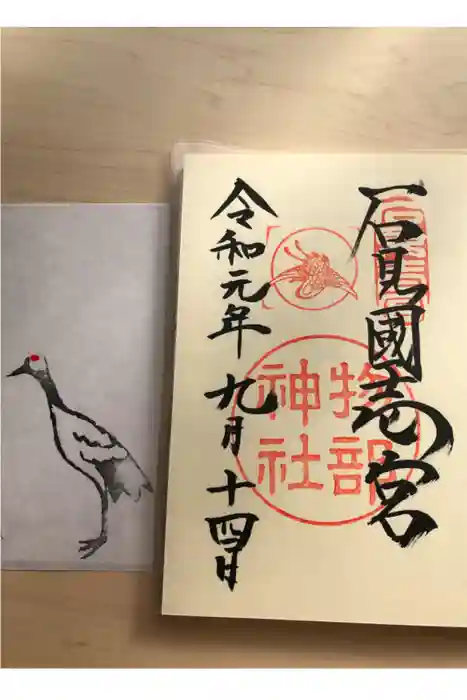 石見國壱宮
物部
神社
令和元年九月十四日